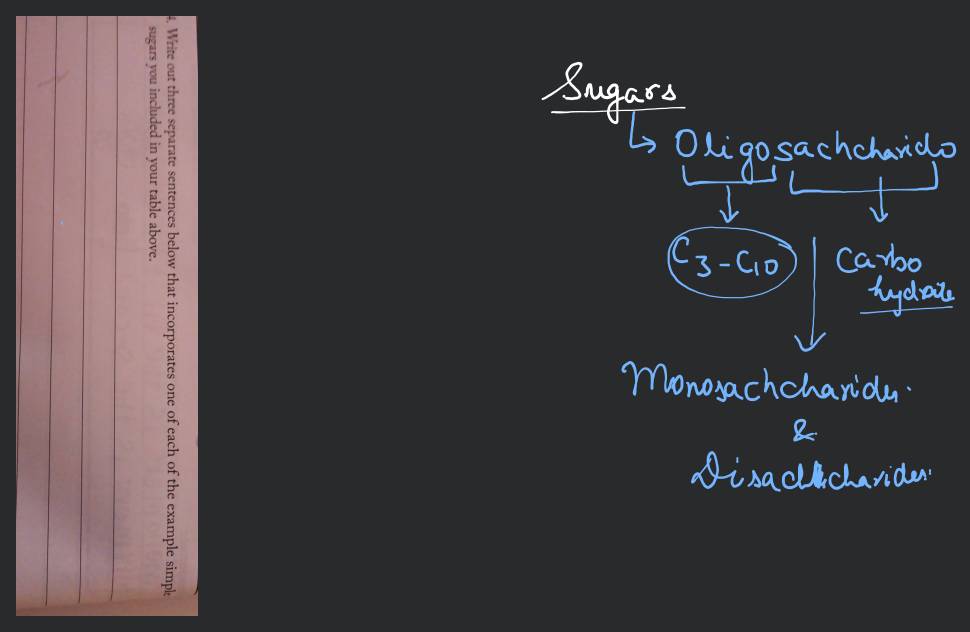 4. Write out three separate sentences below that incorporates one of each of the example simple
sugars you included in your table above.
Sugars
Oligosachcharido
C3-C10
Carbo
hydrate
Monosachcharides.
&
Disachcharides.